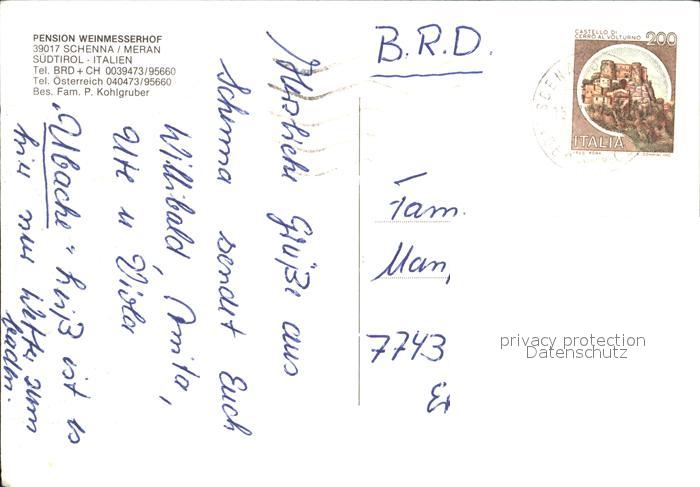 PENSION WEINMESSERHOF
39017 SCHENNA / MERAN
SÜDTIROL - ITALIEN
Tel. BRD + CH 0039473/95660
Tel. Österreich 040473/95660
Bes. Fam. P. Kohlgruber
Herzliche Grüße aus
Schenna sendet Euch
Willibald, Anita,
Ute u Viola
"Ubache" heiß ist es
hier nur Wetter zum
baden.
B.R.D.
CASTELLO DI
CERRO AL VOLTURNO
200
ITALIA
Fam.
Man,
7743
privacy protection
Datenschutz